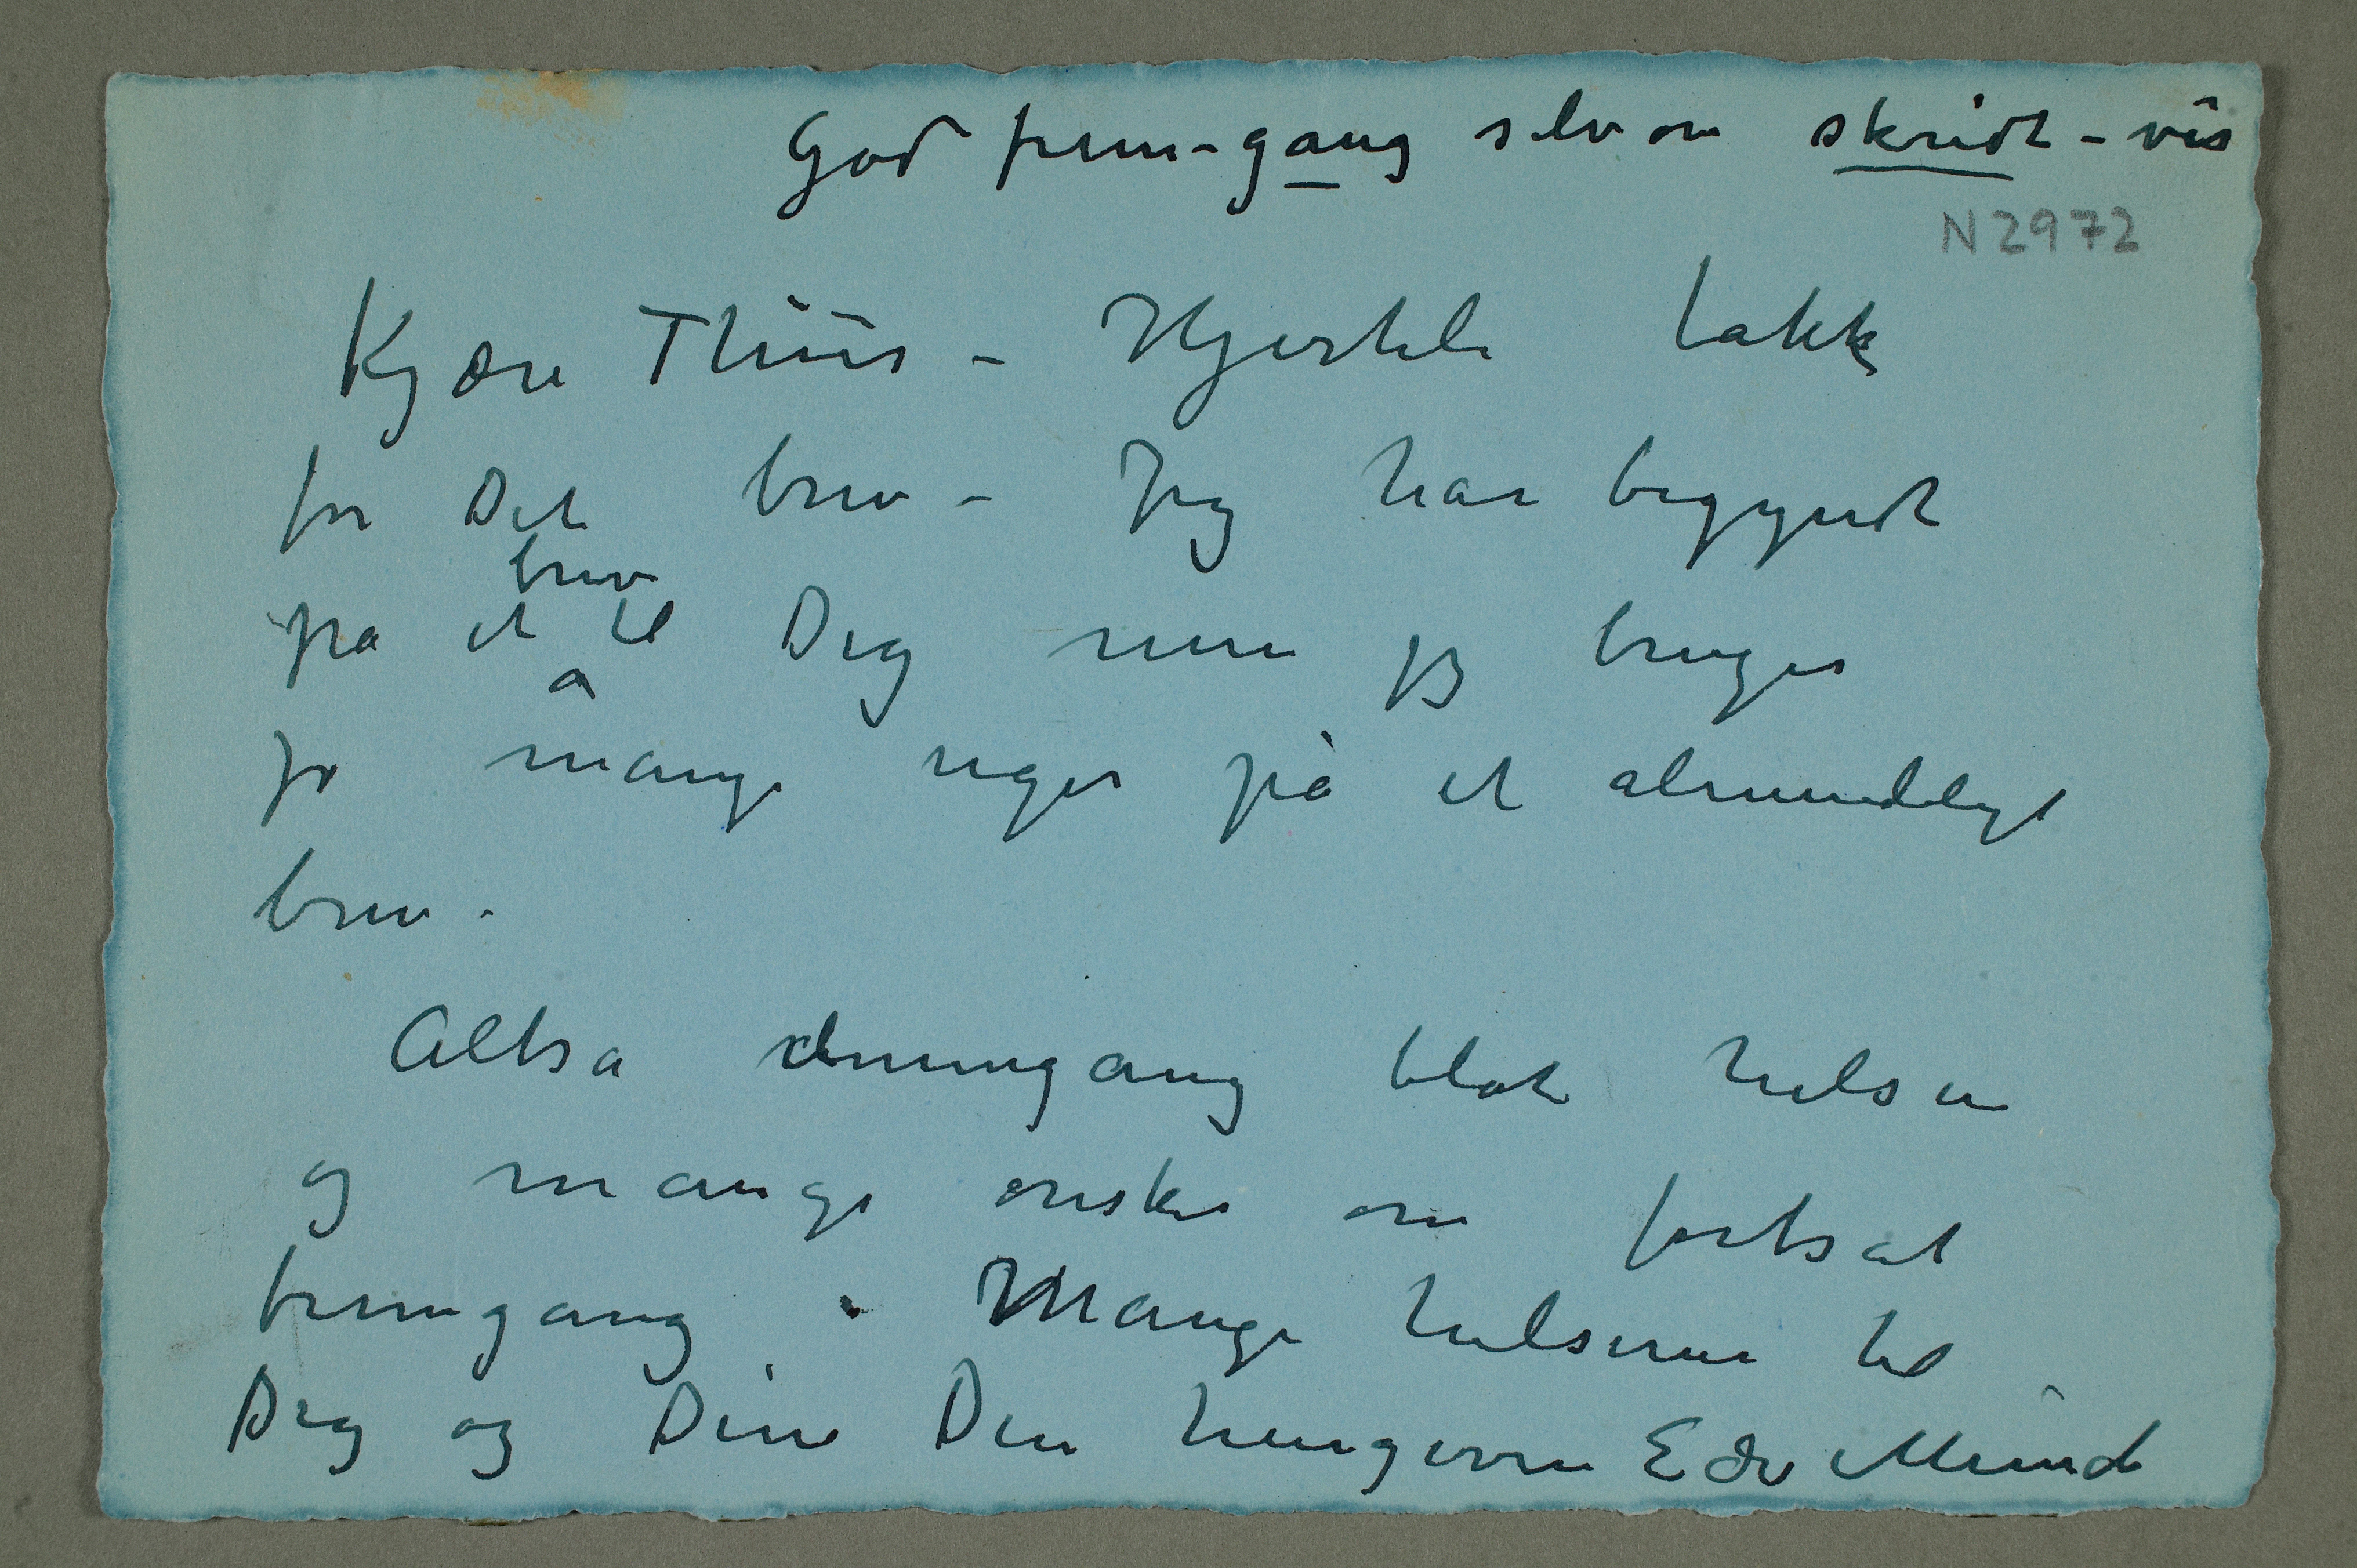 God frem-gang selv om skridt-vis
N 2972
Kjære Thiis – Hjerteli takk
for Dit brev – Jeg har begyndt
brev
på et til Dig men jeg bruger
jo mange uger på et almindeligt
brev.
Altså dennegang blot hilsen
og mange ønsker om fortsat
fremgang. Mange hilsener til
Dig og Dine Din hengivne Edv Munch